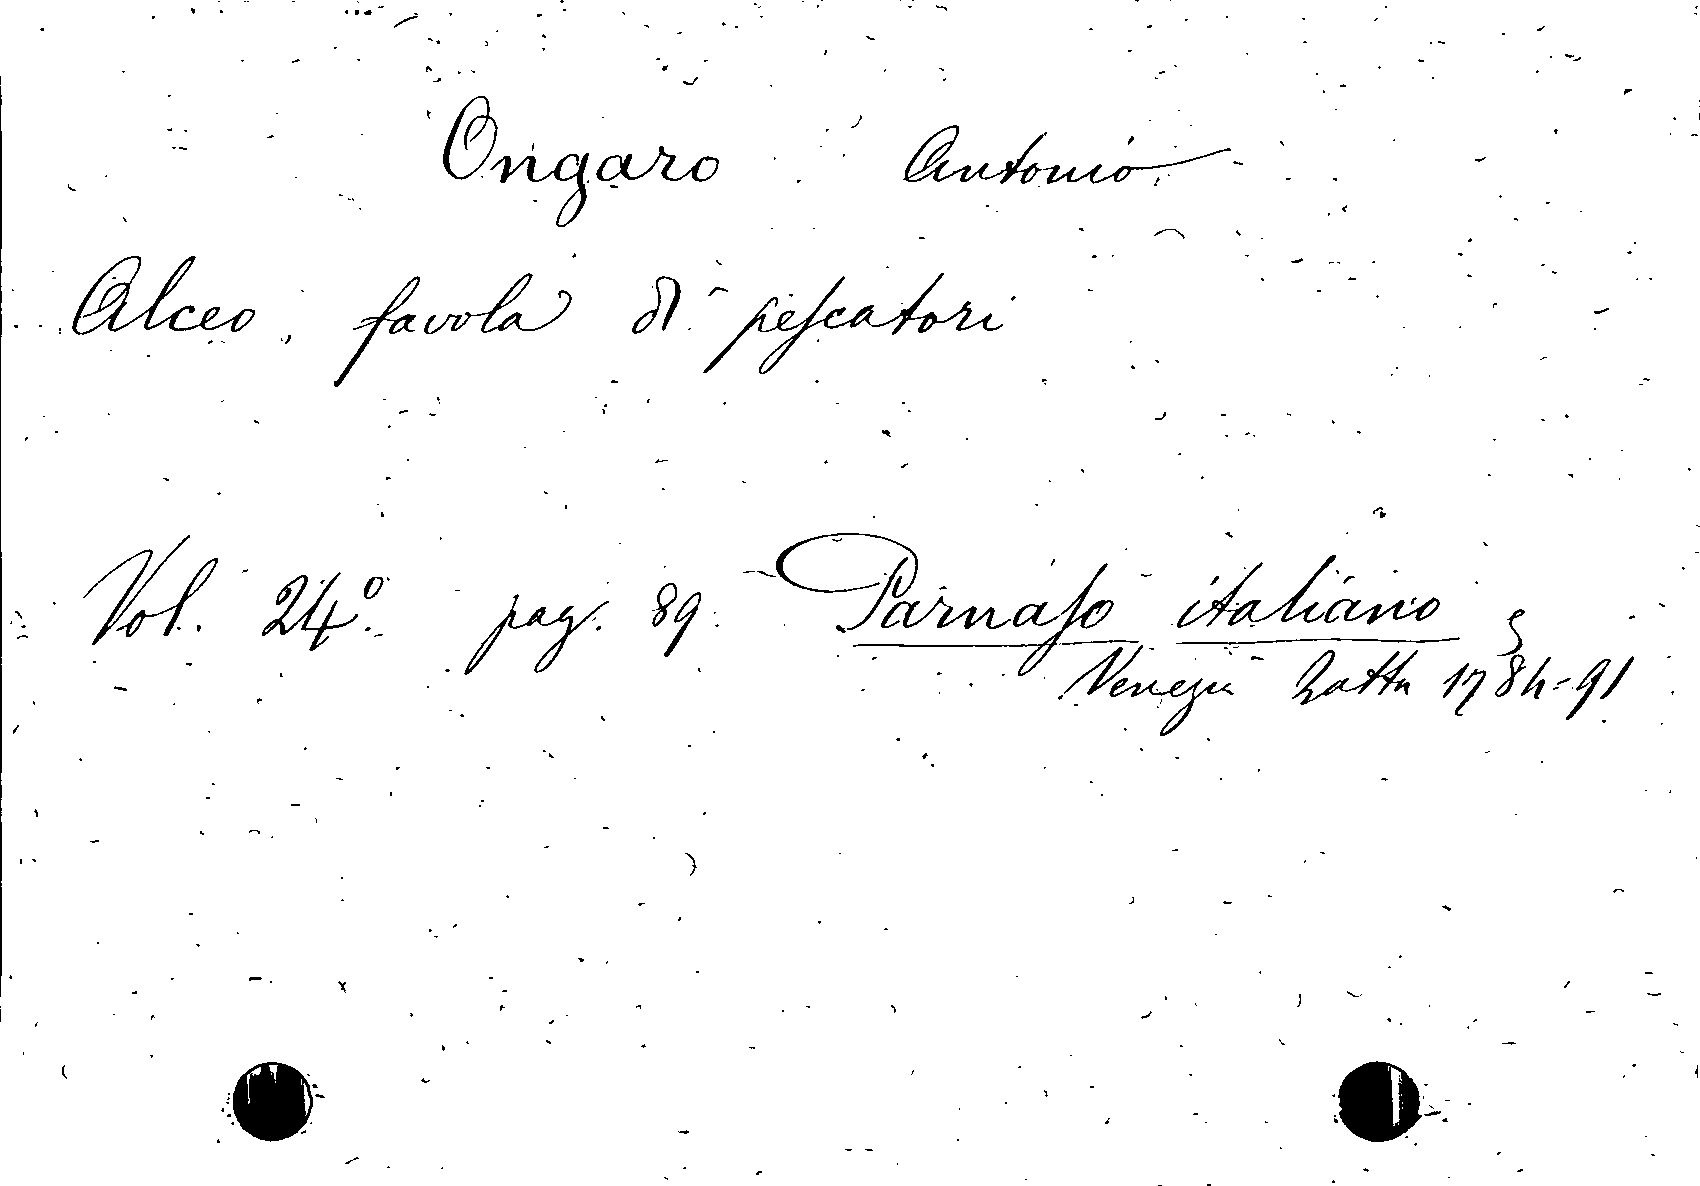 Ongaro Antonio
Alceo, favola di pescatori
Vol. 24º. pag. 89. Parnaſo italiano
Venezia Zatta 1784=91